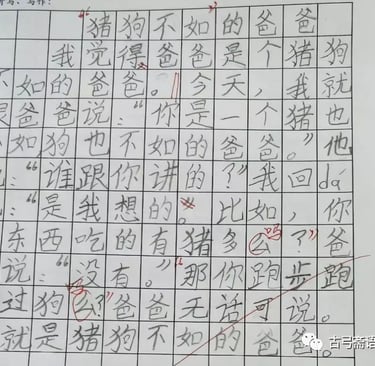 "猪狗不如"的爸爸
我觉得爸爸是个猪狗
不如的爸爸。今天,我就
跟爸爸说:"你是一个猪也
不如狗也不如的爸爸。"他
说:"谁跟你讲的?"我回dá
:"是我想的。比如,你
东西吃的有猪多么吗?"爸
说:"没有。""那你跑步跑
过狗么吗?"爸爸无话可说。
就是猪狗不如的爸爸。
古弓斋语